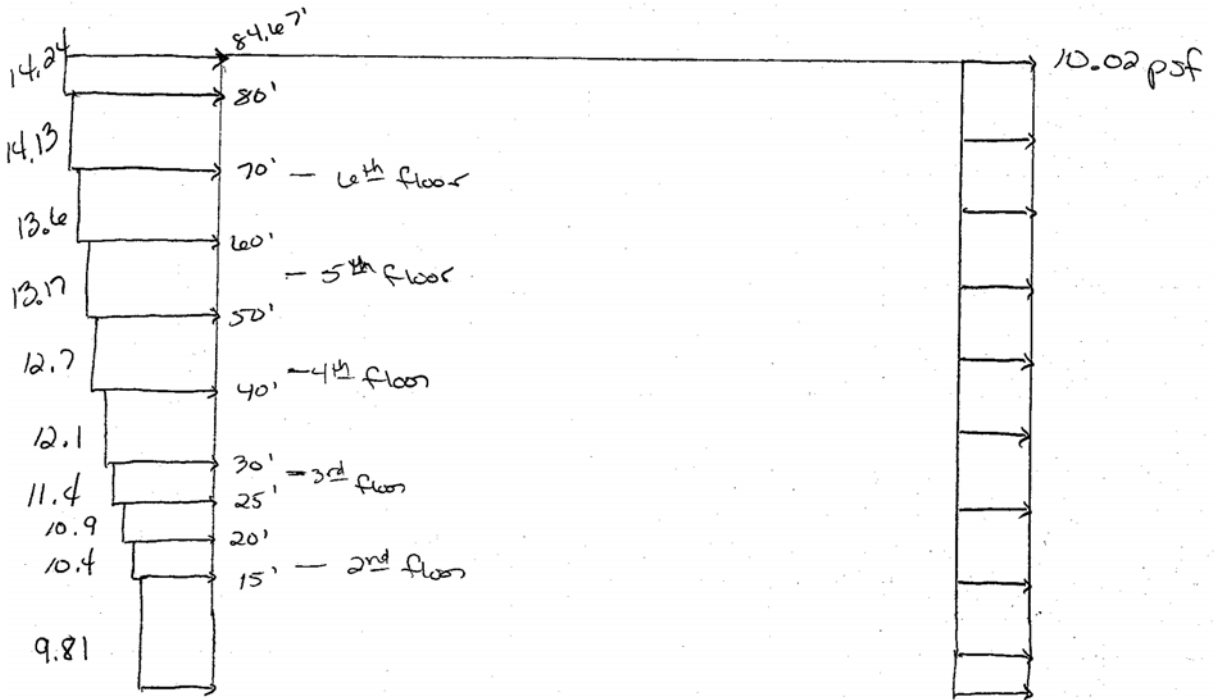 84.67'
14.24
10.02 psf
80'
14.13
70' — 6th floor
13.6
60'
— 5th floor
13.17
50'
12.7
— 4th floor
40'
12.1
30'
— 3rd floor
11.4
25'
10.9
20'
10.4
15' — 2nd floor
9.81